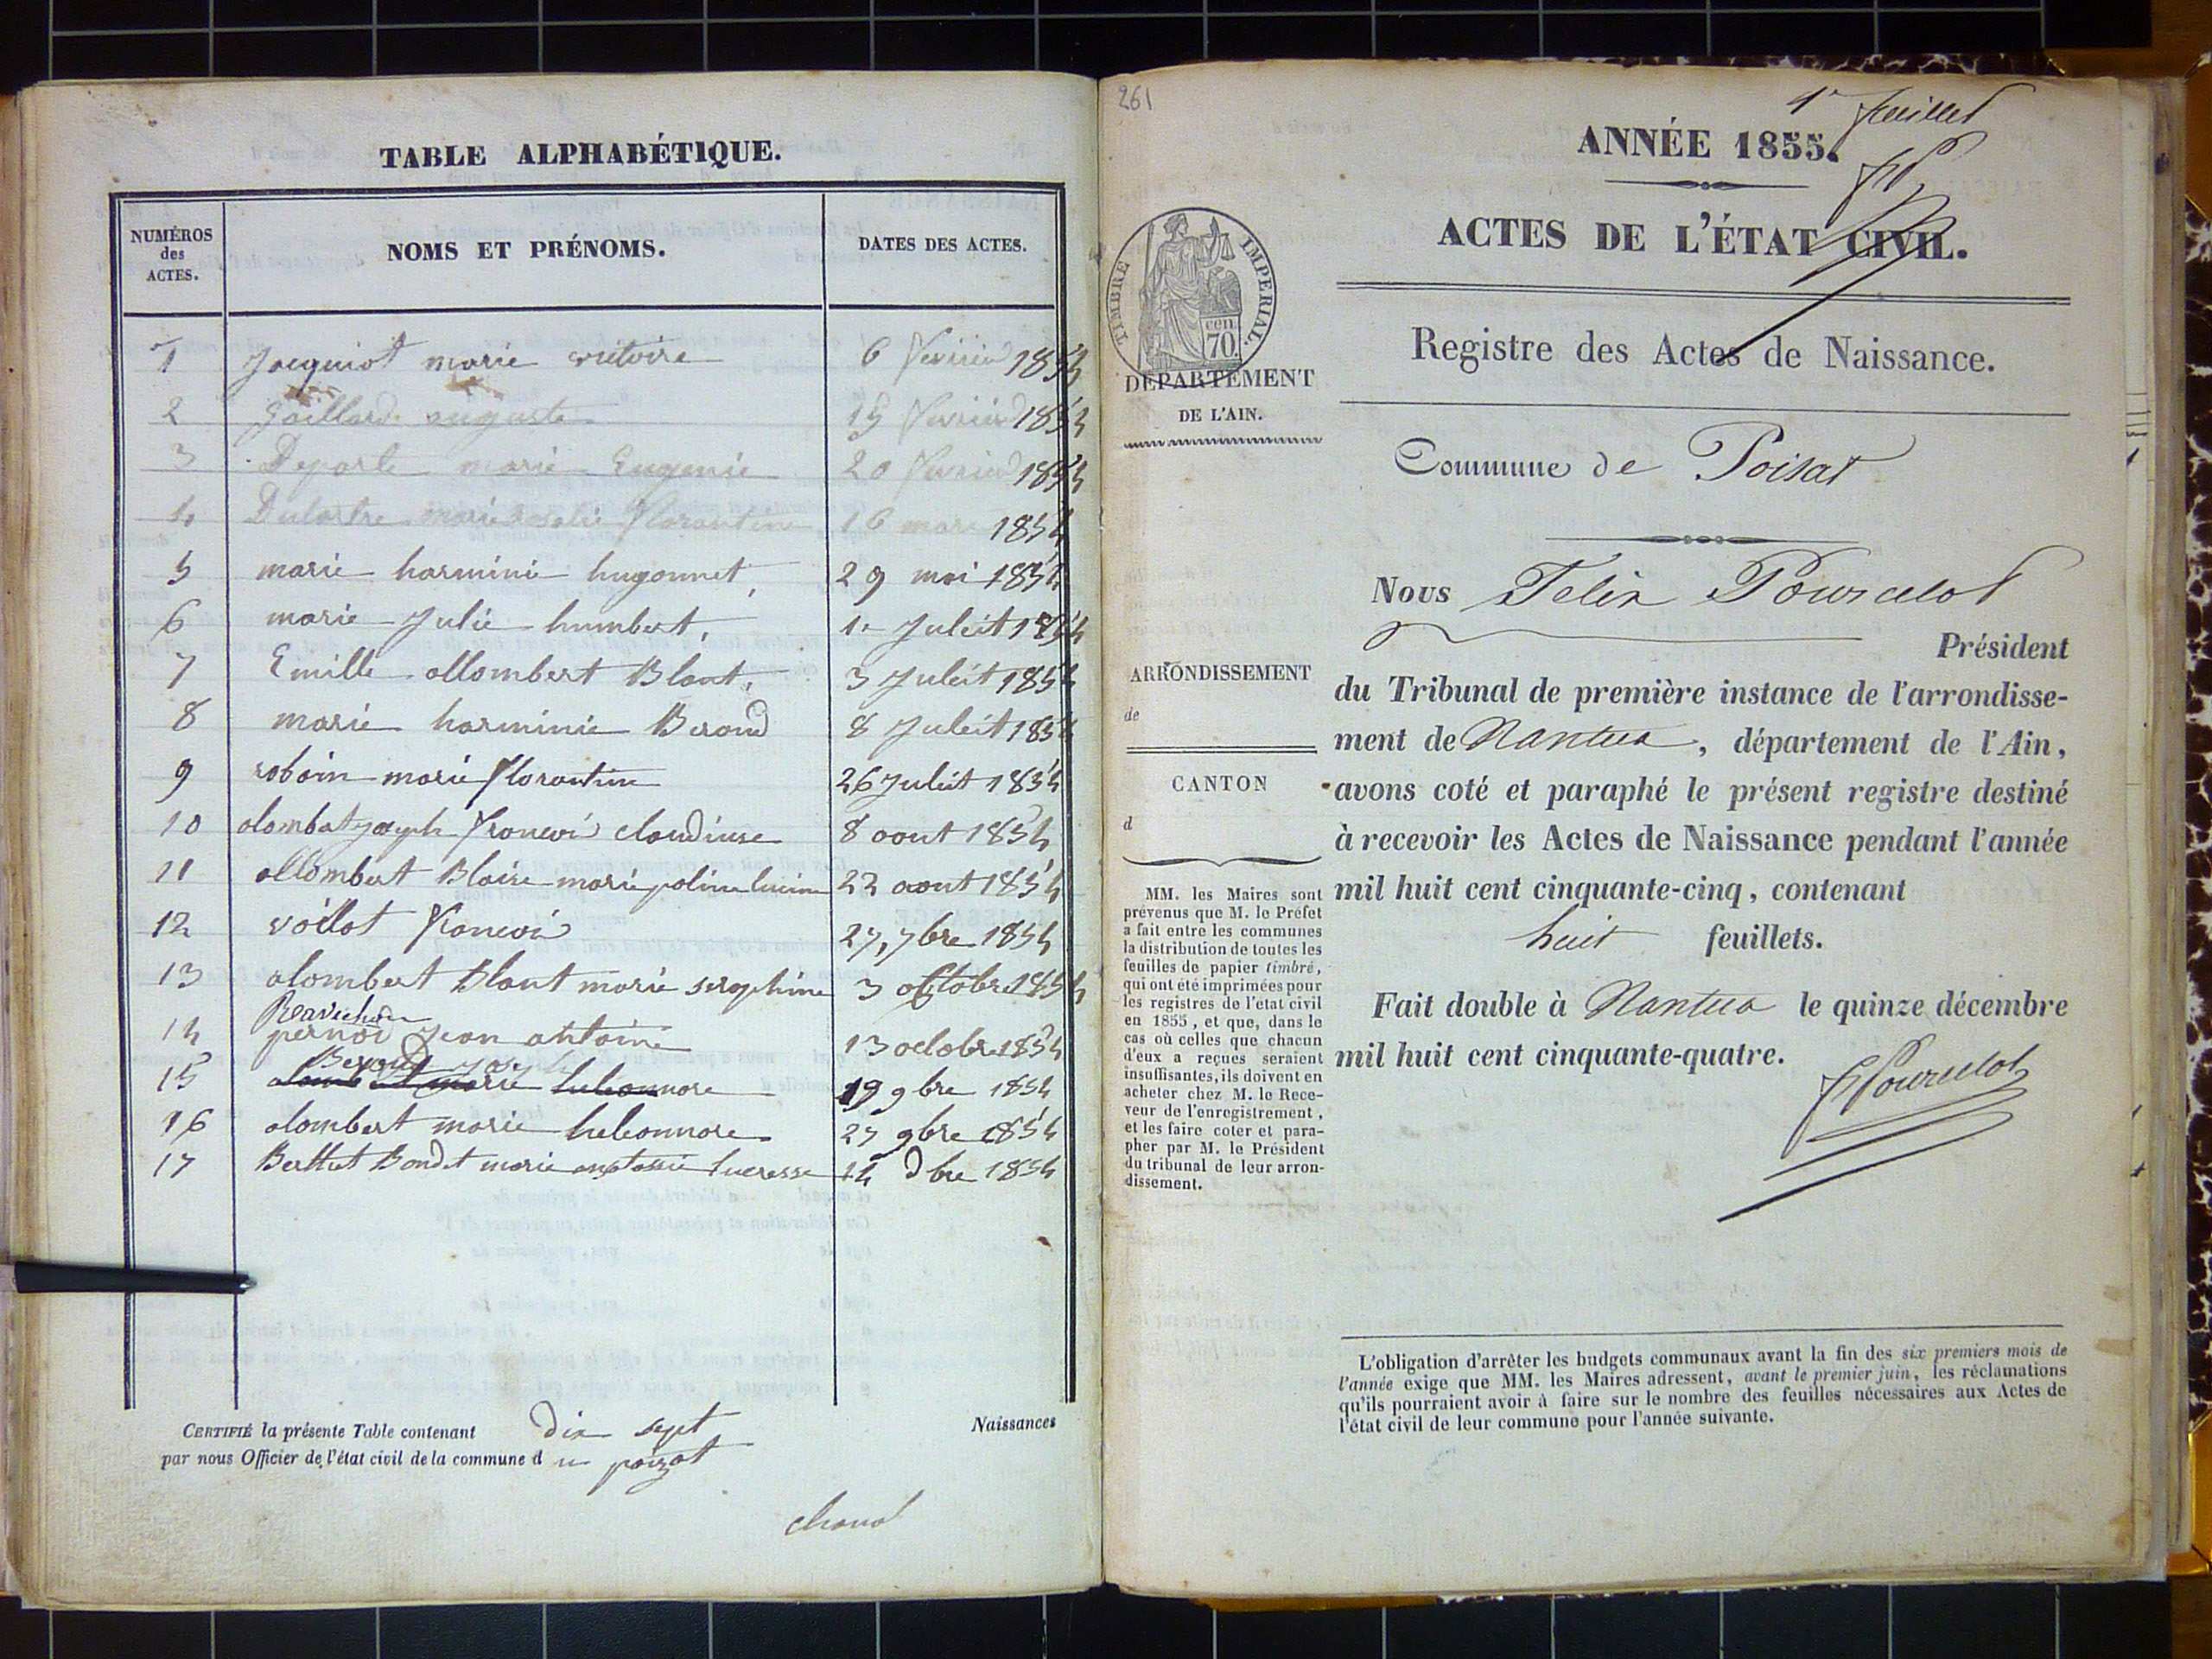 TABLE ALPHABÉTIQUE.
NUMÉROS des ACTES.
NOMS ET PRÉNOMS.
DATES DES ACTES.
1 Jacquiot marie victoire 6 fevrier 1854
2 Gaillard auguste 15 fevrier 1854
3 marie Eugenie 20 fevrier 1854
4 marie rosalie florantine 16 mars 1854
5 marie harmini hugonnet, 29 mai 1854
6 marie Julie humbert, 1er Juleit 1854
7 Emille allombert Blant, 3 Juleit 1854
8 marie harminie Berond 8 Juleit 1854
9 robin marie florantine 26 Juleit 1854
10 alombat joseph francoi claudiuse 8 aout 1854
11 allombert Blaise marie poline lucine 22 aout 1854
12 voillot francoi 27, 7bre 1854
13 alombert Blant marie seraphine 3 octobre 1854
14 pernod Jean antoine 13 octobre 1854
15 19 9bre 1854
16 alombert marie heleonnore 27 9bre 1854
17 Berthet Bondet marie anstasie lucresse 14 dbre 1854
CERTIFIÉ la présente Table contenant dix sept Naissances
par nous Officier de l'état civil de la commune d u poizat
261
1er feuillet
ANNÉE 1855.
ACTES DE L'ÉTAT CIVIL.
TIMBRE IMPERIAL.
cen 70
DÉPARTEMENT
DE L'AIN.
Registre des Actes de Naissance.
Commune de Poisat
Nous Felix Pourcelot
Président
du Tribunal de première instance de l'arrondisse-
ment de Nantua, département de l'Ain,
avons coté et paraphé le présent registre destiné
à recevoir les Actes de Naissance pendant l'année
mil huit cent cinquante-cinq, contenant
huit feuillets.
Fait double à Nantua le quinze décembre
mil huit cent cinquante-quatre.
F Pourcelot
ARRONDISSEMENT
de
CANTON
d
MM. les Maires sont
prévenus que M. le Préfet
a fait entre les communes
la distribution de toutes les
feuilles de papier timbré,
qui ont été imprimées pour
les registres de l'état civil
en 1855, et que, dans le
cas où celles que chacun
d'eux a reçues seraient
insuffisantes, ils doivent en
acheter chez M. le Rece-
veur de l'enregistrement,
et les faire coter et para-
pher par M. le Président
du tribunal de leur arron-
dissement.
L'obligation d'arrêter les budgets communaux avant la fin des six premiers mois de
l'année exige que MM. les Maires adressent, avant le premier juin, les réclamations
qu'ils pourraient avoir à faire sur le nombre des feuilles nécessaires aux Actes de
l'état civil de leur commune pour l'année suivante.